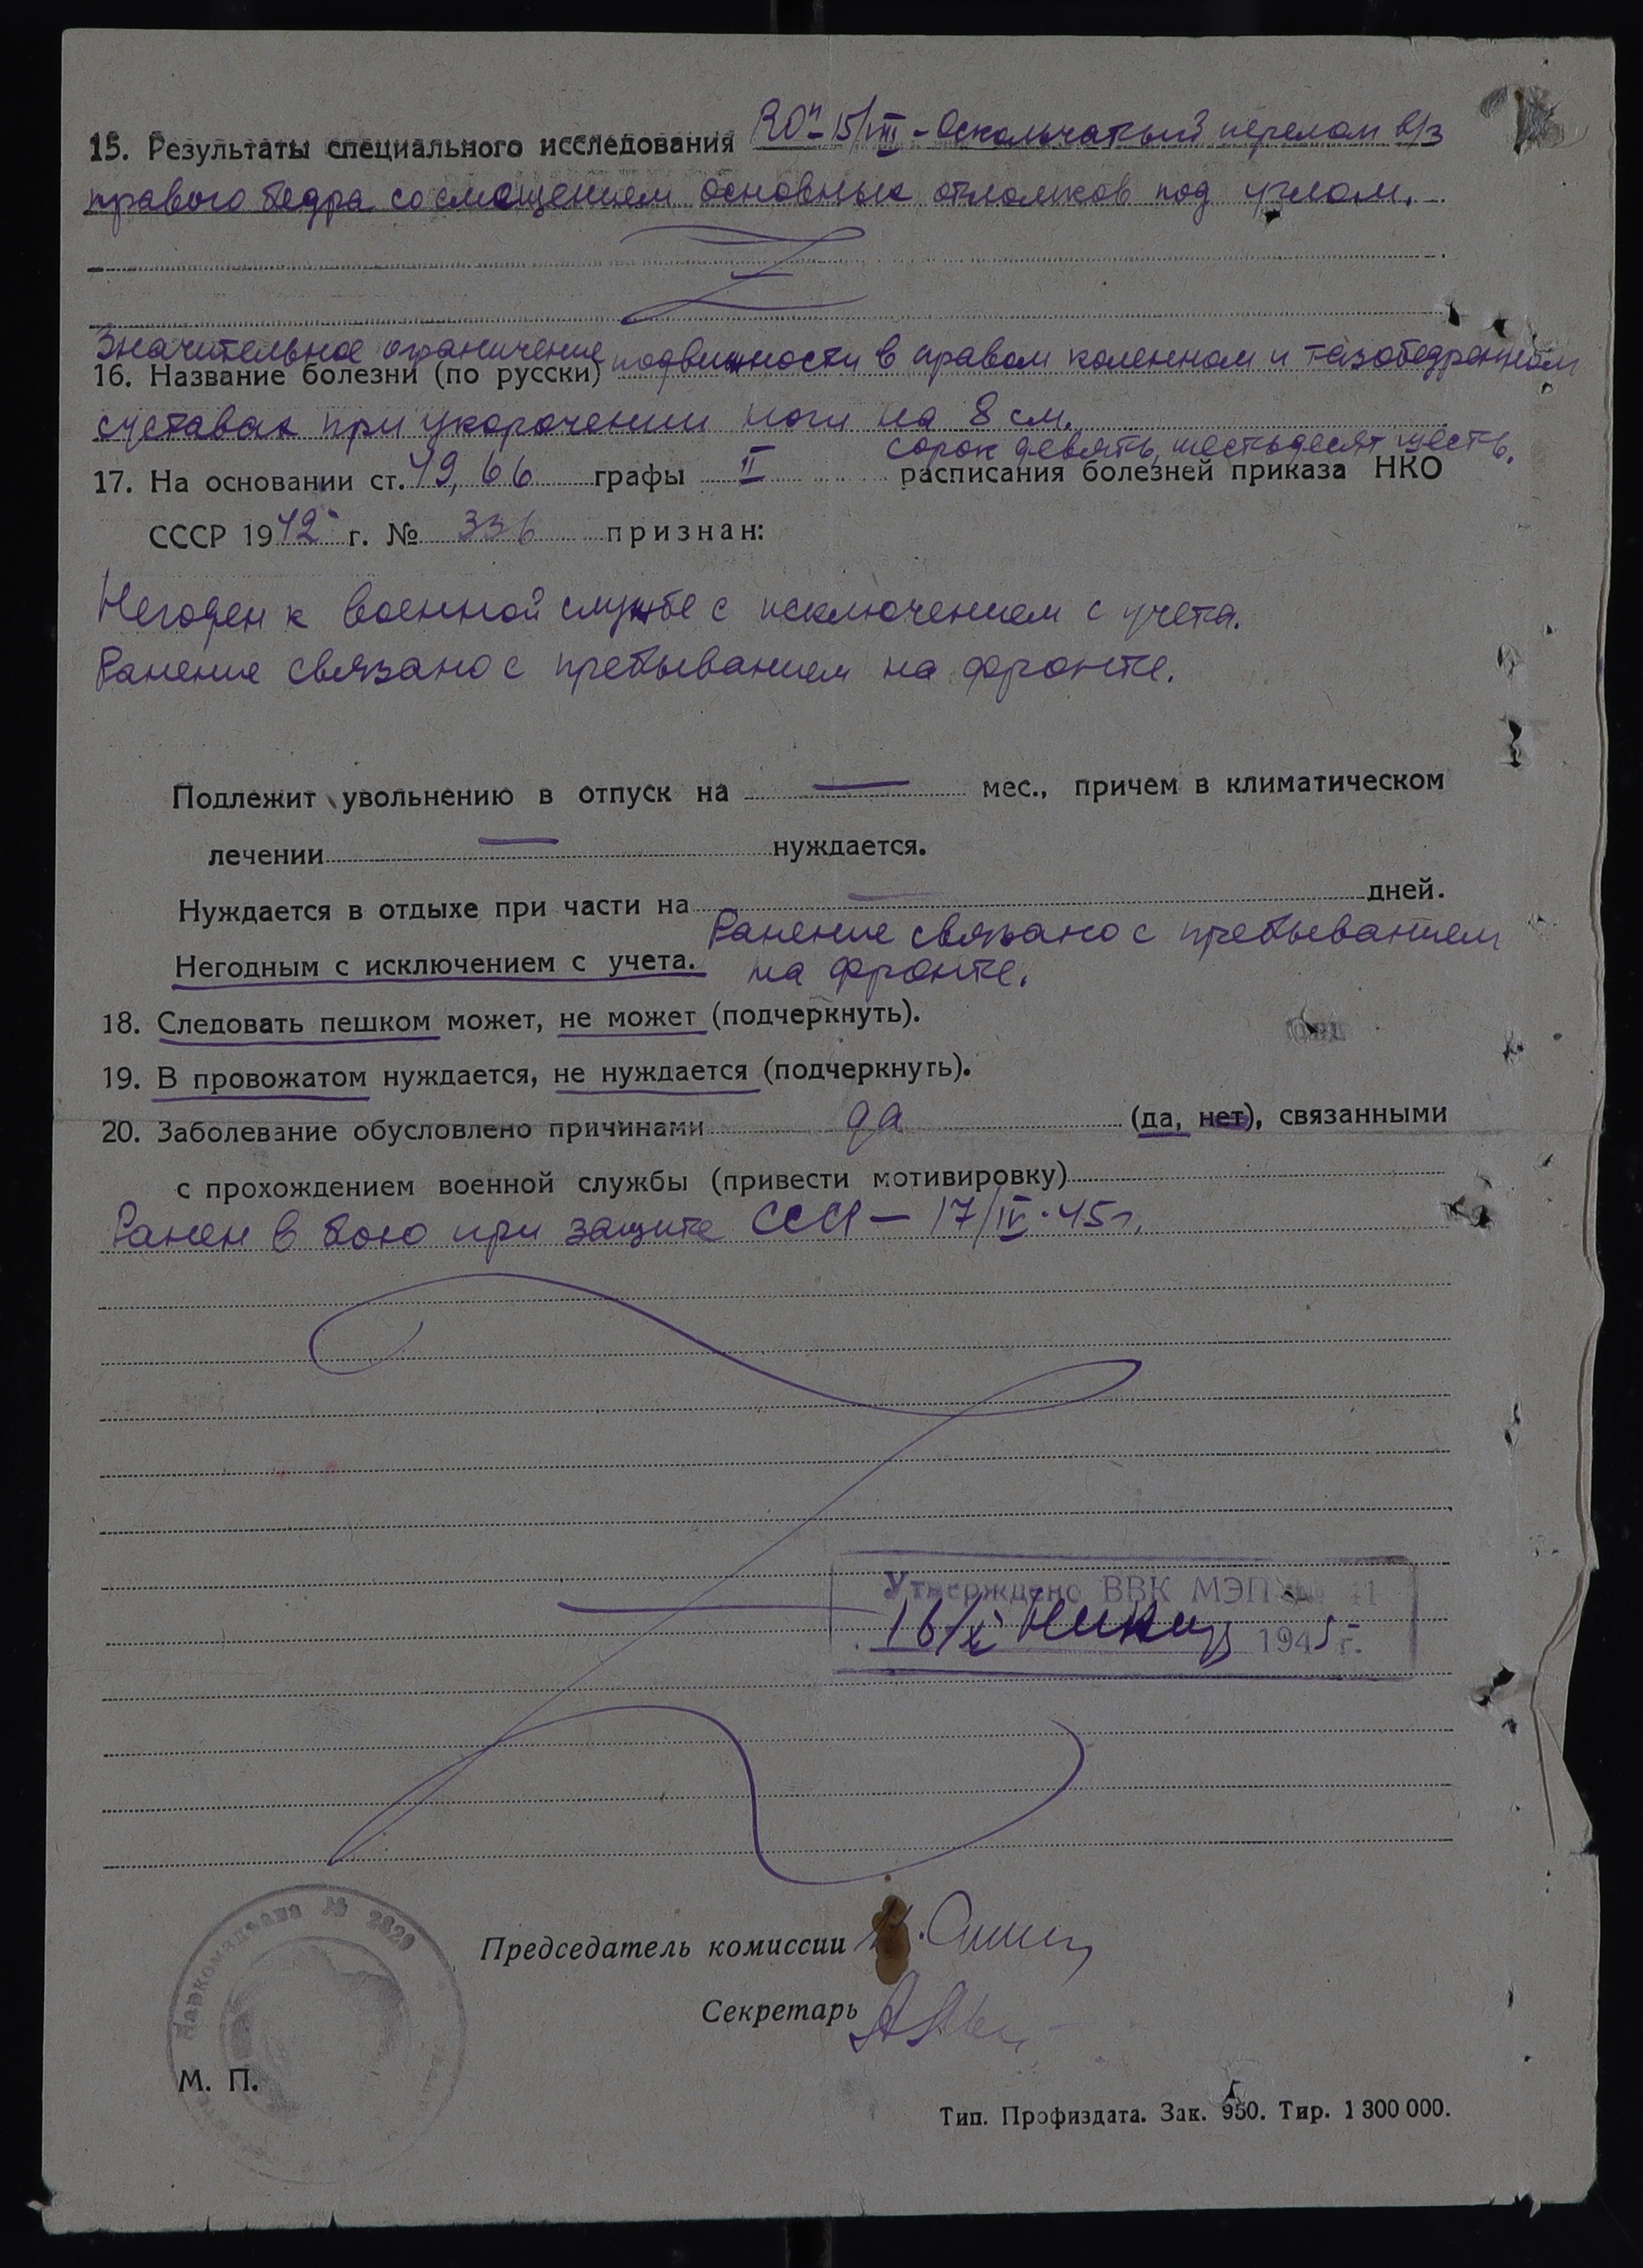 15. Результаты специального исследования Rоп-15/VIII - Оскольчатый перелом в/з
правого бедра со смещением основных отломков под углом.
Значительное ограничение подвижности в правом коленном и тазобедренном
16. Название болезни (по русски)
суставах при укорочении ноги на 8 см.
сорок девять, шестьдесят шесть.
17. На основании ст. 49, 66 графы II расписания болезней приказа НКО
СССР 1942 г. № 336 признан:
Негоден к военной службе с исключением с учета.
Ранение связано с пребыванием на фронте.
Подлежит увольнению в отпуск на — мес., причем в климатическом
лечении — нуждается.
Нуждается в отдыхе при части на — дней.
Ранение связано с пребыванием
Негодным с исключением с учета. на фронте.
18. Следовать пешком может, не может (подчеркнуть).
19. В провожатом нуждается, не нуждается (подчеркнуть).
20. Заболевание обусловлено причинами да (да, нет), связанными
с прохождением военной службы (привести мотивировку)
Ранен в бою при защите СССР — 17/IV-45г.
Утверждено ВВК МЭП
16/X 1945 г.
Наркомздрава № 2820
Председатель комиссии
Секретарь
М. П.
Тип. Профиздата. Зак. 950. Тир. 1 300 000.